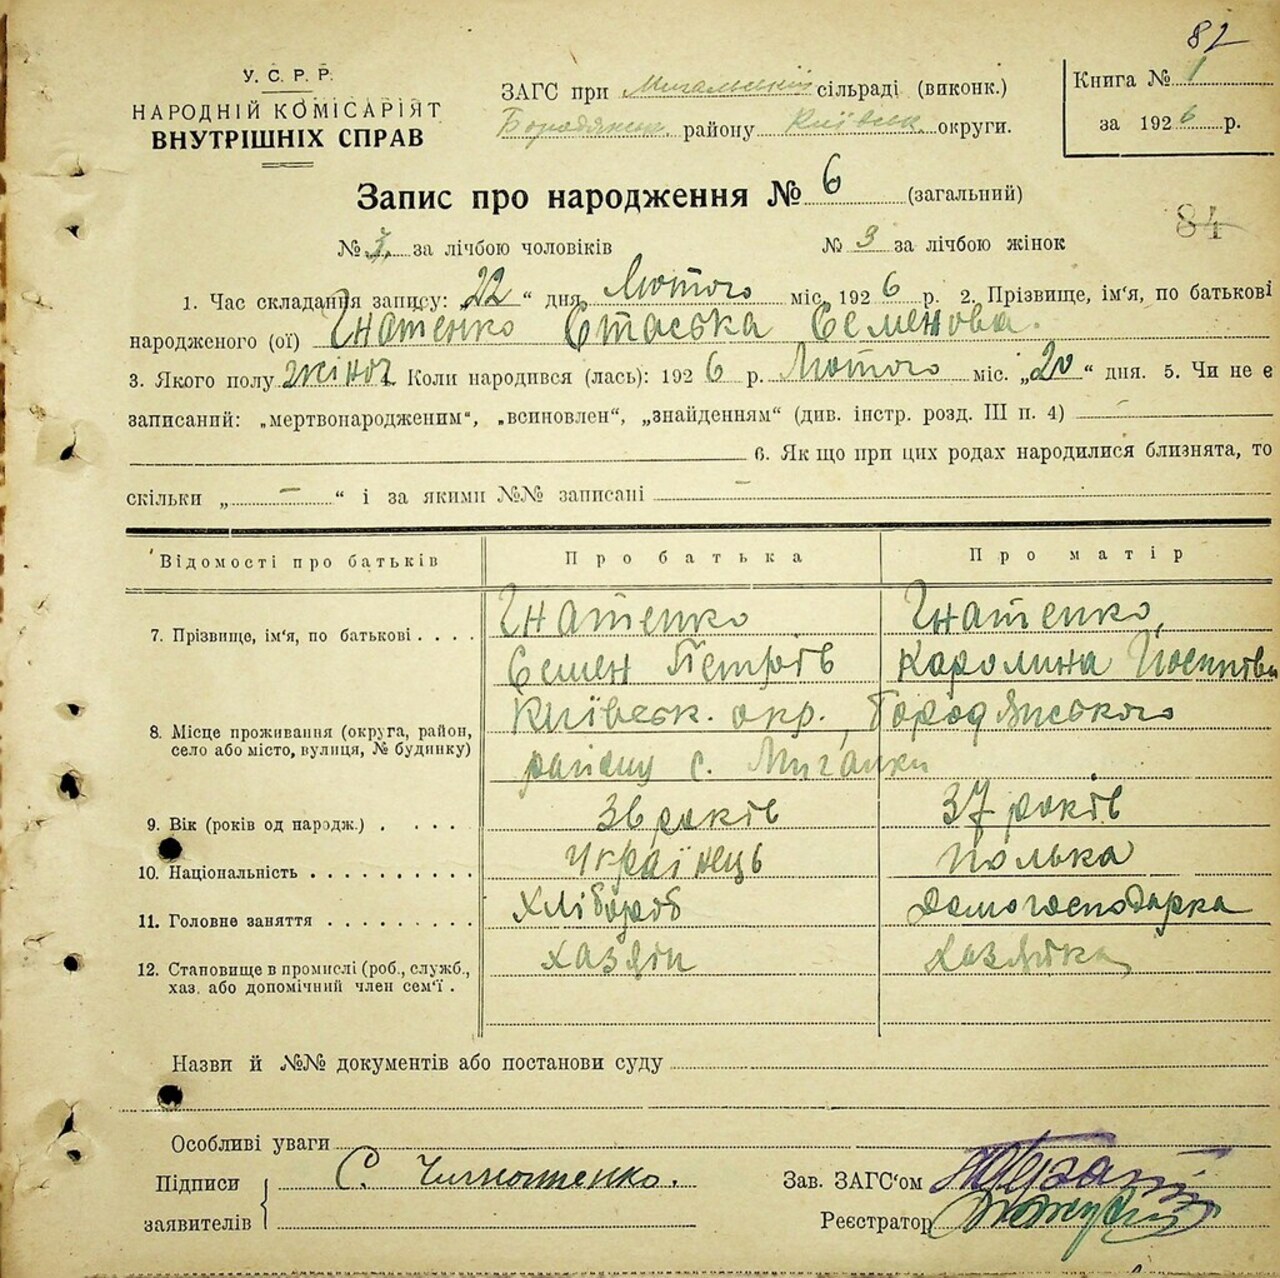 82
У. С. Р. Р.
НАРОДНІЙ КОМІСАРІЯТ
ВНУТРІШНІХ СПРАВ
ЗАГС при Мигальський сільраді (виконк.)
Бородянськ. району Київськ. округи.
Книга № 1
за 1926 р.
Запис про народження № 6 (загальний)
84
№ 3 за лічбою чоловіків № 3 за лічбою жінок
1. Час складання запису: „22“ дня Лютого міс. 1926 р. 2. Прізвище, ім'я, по батькові
народженого (ої) Гнатенко Стаська Семенова.
3. Якого полу жіноч Коли народився (лась): 1926 р. Лютого міс. „20“ дня. 5. Чи не є
записаний: „мертвонародженим“, „всиновлен“, „знайденням“ (див. інстр. розд. III п. 4) —
6. Як що при цих родах народилися близнята, то
скільки „ — “ і за якими №№ записані —
Відомості про батьків Про батька Про матір
7. Прізвище, ім'я, по батькові . . . . Гнатенко Гнатенко,
Семен Петрів Каролина
8. Місце проживання (округа, район, Київськ. окр., Бородянського
село або місто, вулиця, № будинку) району с. Мигалки
9. Вік (років од народж.) . . . . 36 років 37 років
10. Національність . . . . . . . . . . Українець полька
11. Головне заняття . . . . . . . . . Хлібороб домогосподарка
12. Становище в промислі (роб., служб., хазяїн хазяйка
хаз. або допомічний член сем'ї .
Назви й №№ документів або постанови суду
Особливі уваги
Підписи С.
заявителів
Зав. ЗАГС'ом
Реєстратор